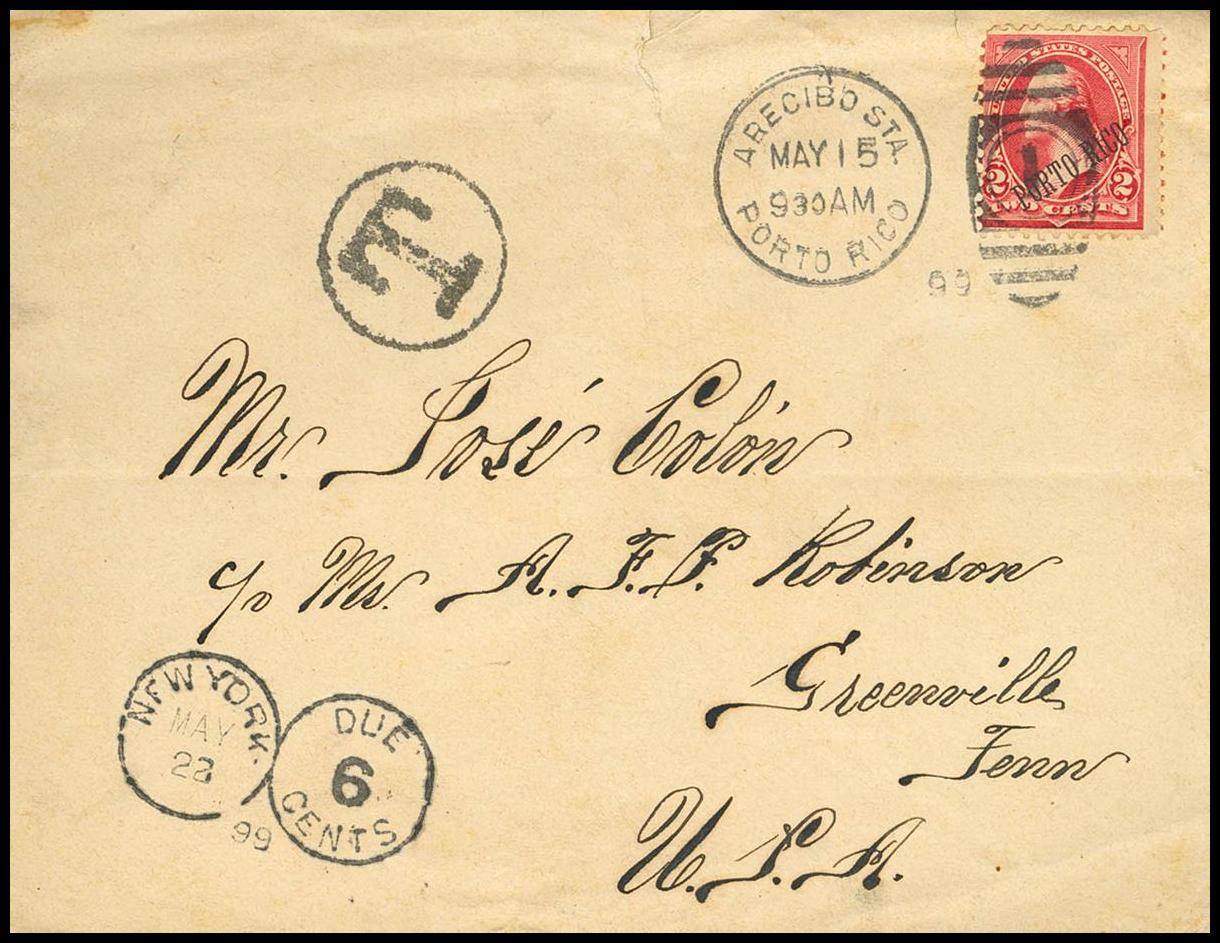 UNITED STATES POSTAGE
PORTO RICO
2 CENTS 2
ARECIBO STA.
MAY 15
930AM
PORTO RICO
99
1
T
Mr. José Colón
c/o Mr. A. F. P. Robinson
Greenville
Tenn
U. S. A.
NEW YORK.
MAY
23
99
DUE
6
CENTS